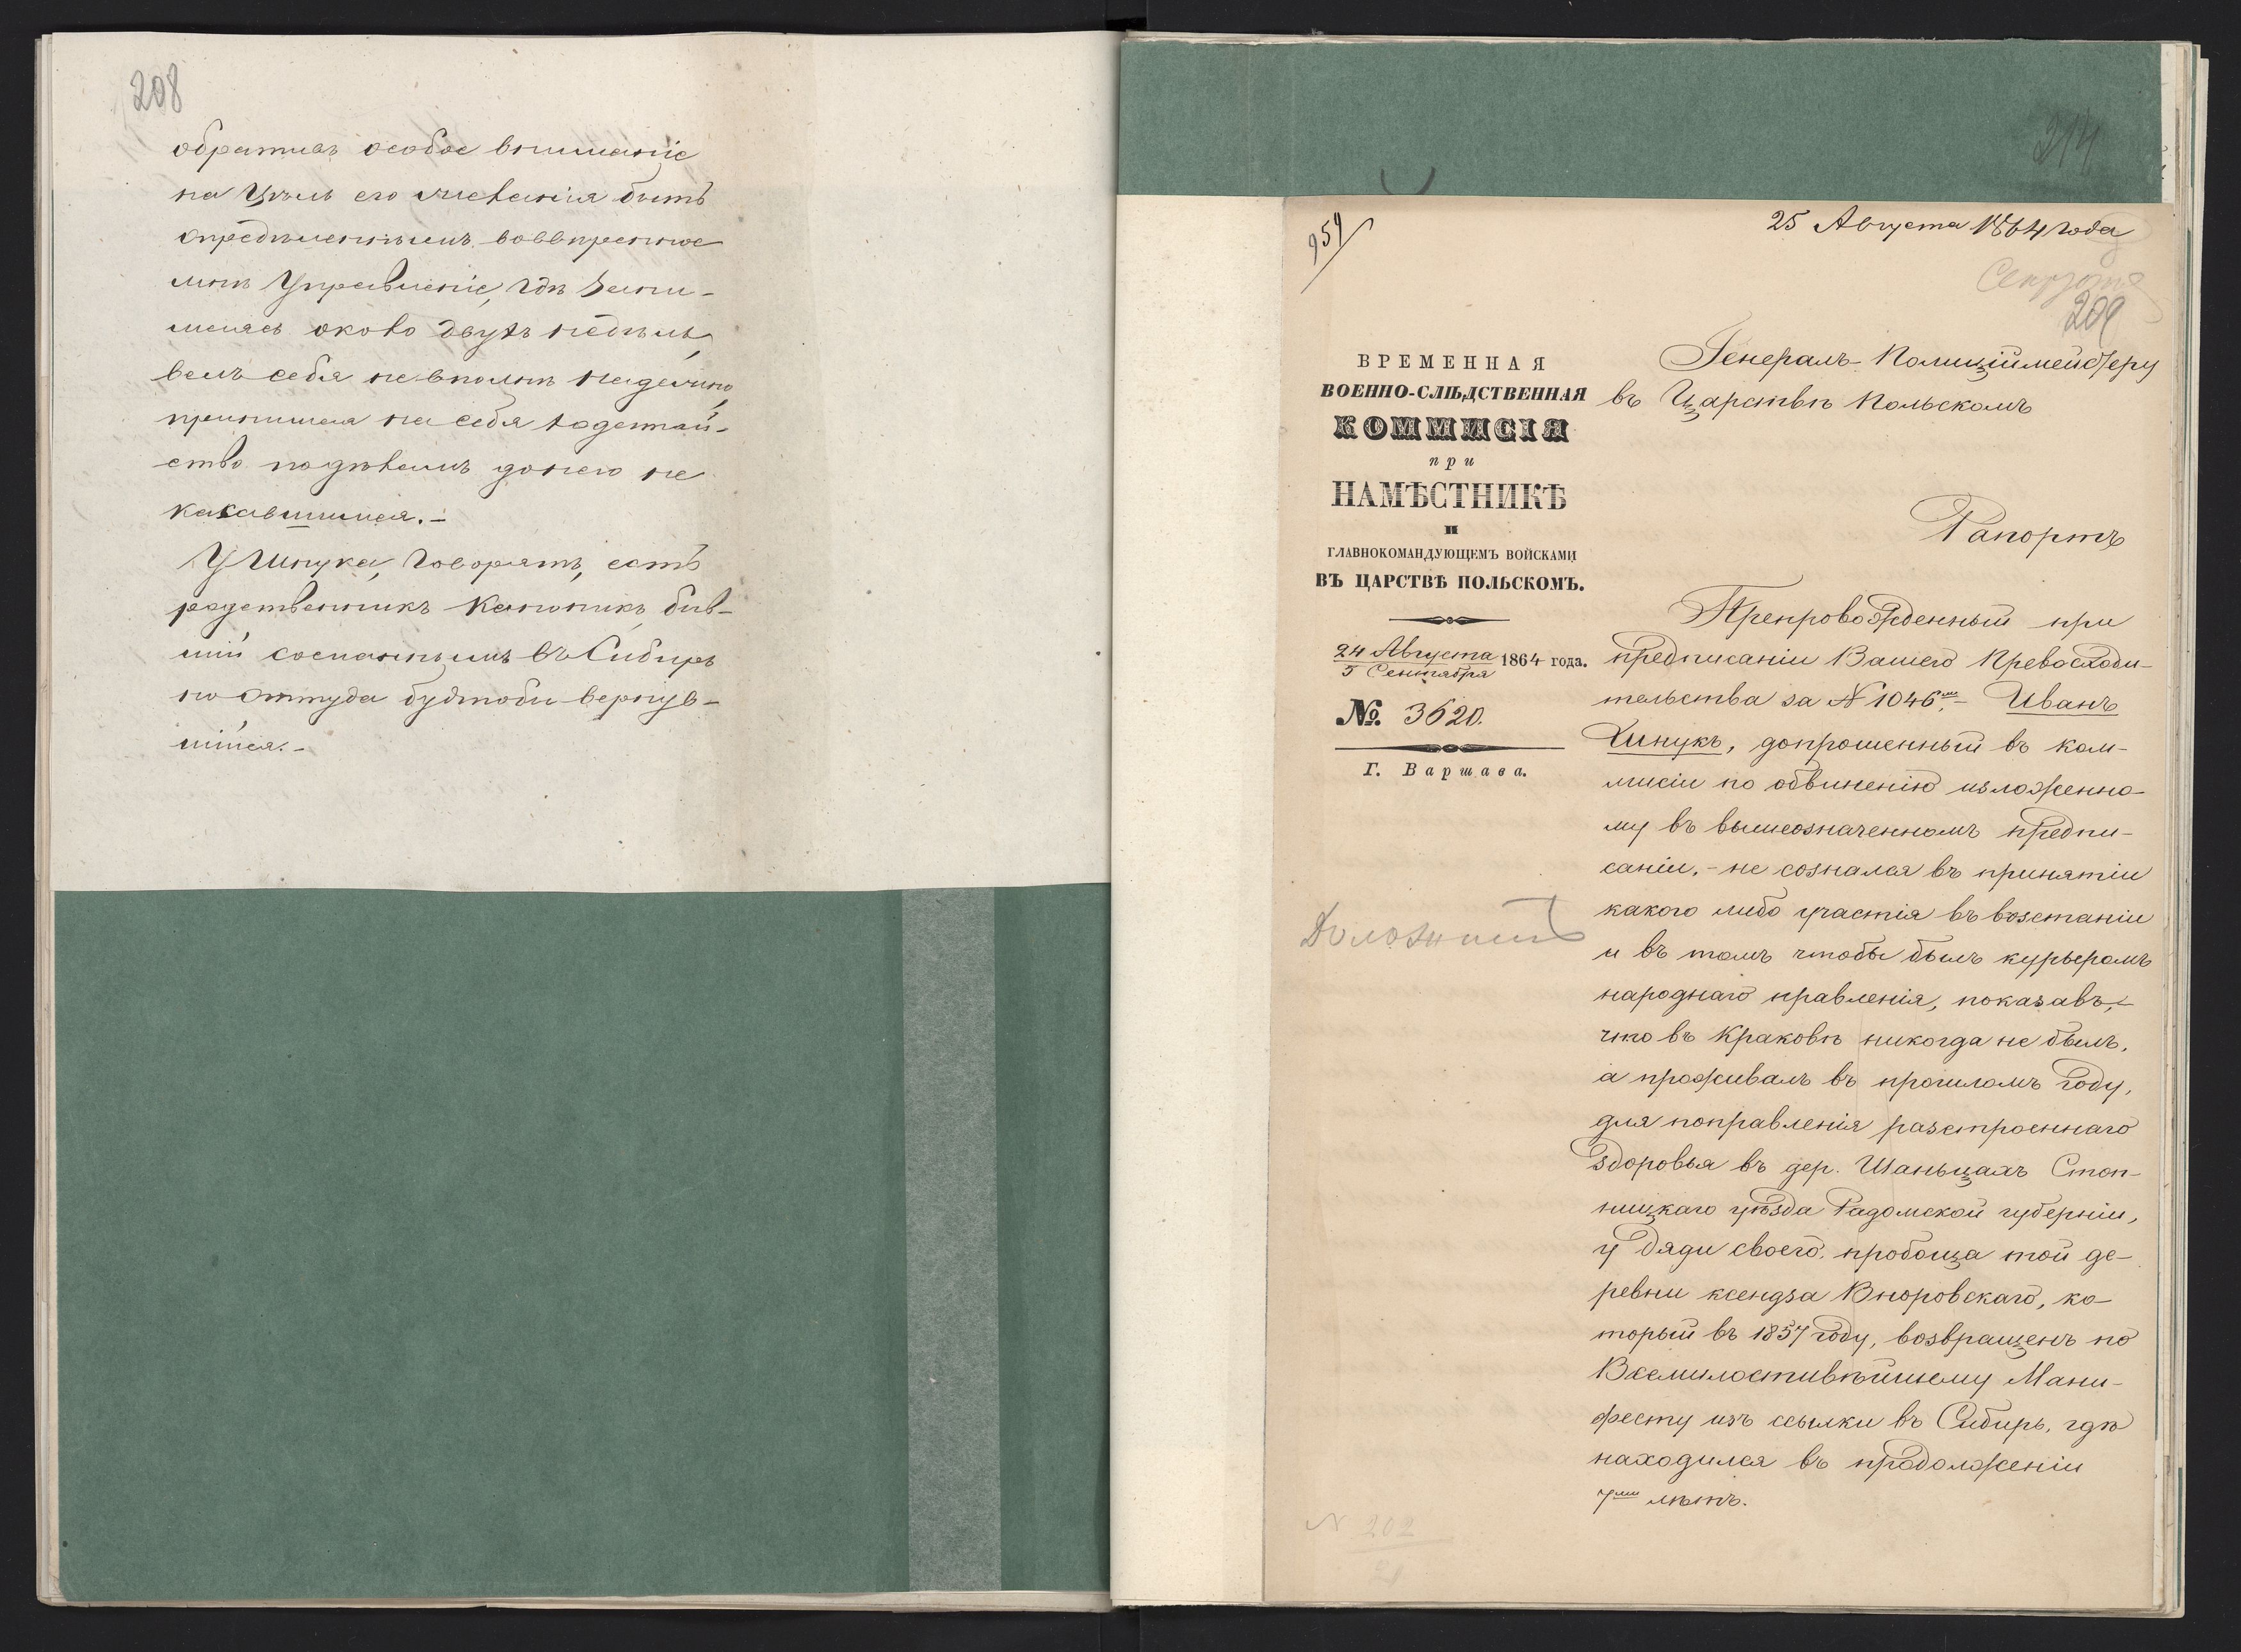 208
обративъ особое вниманіе
на цѣль его желанія быть
опредѣленнымъ воввѣренное
мнѣ Управленіе, гдѣ зани-
маясь около двухъ недѣль,
велъ себя невполнѣ надежно,
принимая на себя ходатай-
ство подѣламъ донего не
касавшимся.-
У Шнука, говорятъ, есть
родственникъ Каноникъ, быв-
шій сосланнымъ въ Сибирь
но оттуда будтобы вернув-
шійся.-
214
959
25 Августа 1864 года
209
ВРЕМЕННАЯ
ВОЕННО-СЛѢДСТВЕННАЯ
КОММИСІЯ
при
НАМѢСТНИКѢ
И
ГЛАВНОКОМАНДУЮЩЕМЪ ВОЙСКАМИ
ВЪ ЦАРСТВѢ ПОЛЬСКОМЪ.
24 Августа
5 Сентября
1864 года.
№. 3620.
Г. Варшава.
Доложить
Генералъ-Полиціймейстеру
въ Царствѣ Польскомъ
Рапортъ
Препровожденный при
предписаніи Вашего Превосходи-
тельства за № 1046.- Иванъ
допрошенный въ ком-
мисіи по обвиненію изложенно-
му въ вышеозначенномъ предпи-
саніи,- не сознался въ принятіи
какого либо участія въ возстаніи
и въ томъ чтобы былъ курьеромъ
народнаго правленія, показавъ,-
что въ Краковѣ никогда не былъ,
а проживалъ въ прошломъ году,
для поправленія разстроеннаго
здоровья въ дер. Шаньцахъ Стоп-
ницкаго уѣзда Радомской губерніи,
у дяди своего, пробоща той де-
ревни ксендза Вноровскаго, ко-
торый въ 1857 году, возвращенъ по
Всемилостивѣйшему Мани-
фесту изъ ссылки въ Сибирь, гдѣ
находился въ продолженіи
7ми лѣтъ.
N 202